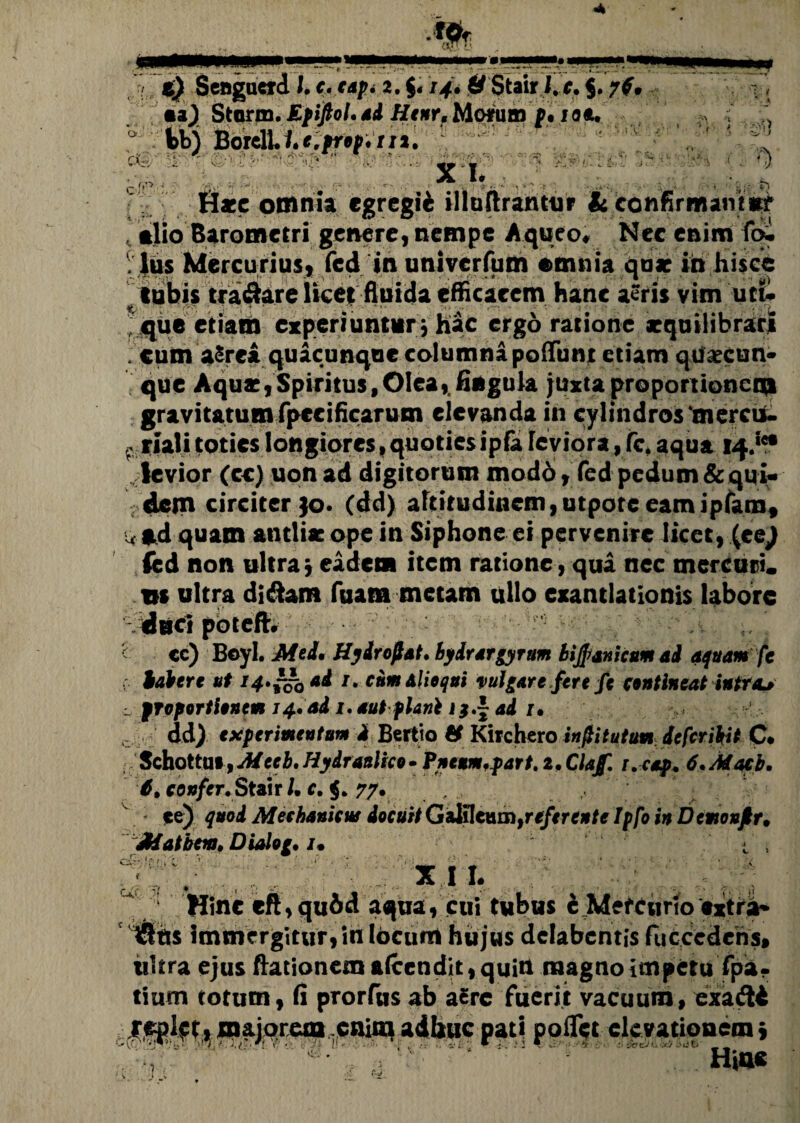 g) Senguerd l. c. cap. 2. §. 14. & Stair l. c. §. 76.
aa) Sturm. Epistol. ad Henr. Morum p. 10a.
bb) Borell. l. c. prop. 112.
XI.
Hæc omnia egregiè illustrantur & confirmantur
alio Barometri genere, nempe Aqueo. Nec enim so-
lus Mercurius, sed in universum omnia quæ in hisce
tubis tractare licet fluida efficacem hanc aëris vim uti-
que etiam experiuntur; hâc ergò ratione æquilibrari
cum aëreâ quâcunque columnâ possunt etiam quæcun-
que Aquæ, Spiritus, Olea, singula juxta proportionem
gravitatum specificarum elevanda in cylindros mercu-
riali toties longiores, quoties ipsâ leviora, sc. aqua 14.ies
levior (cc) uon ad digitorum modò, sed pedum & qui-
dem circiter 30. (dd) altitudinem, utpote eam ipsam,
ad quam antliæ ope in Siphone ei pervenire licet, (ee)
sed non ultra; eâdem item ratione, quâ nec mercuri-
us ultra dictam suam metam ullo exantlationis labore
duci potest.
cc) Boyl. Med. Hydrostat. hydrargyrum hispanicum ad aquam se
habere ut 14.19/100 ad 1. cùm alioqui vulgare fere se contineat intra
proportionem 14. ad 1. aut planè 13.1/2 ad 1.
dd) experimentum à Bertio & Kirchero institutum describit C.
Schottus, Mech. Hydraulico-Pneum. part. 2. Class. 1. cap. 6. Mach.
6. confer. Stair l. c. §. 77.
ee) quod Mechanicus docuit Galileum, referente Ipso in Demonstr.
Mathem. Dialog. 1.
XII.
Hinc est, quòd aqua, cui tubus è Mercurio extra-
ctus immergitur, in locum hujus delabentis succedens,
ultra ejus stationem ascendit, quin magno impetu spa-
tium totum, si prorsus ab aëre fuerit vacuum, exactè
replet, majorem enim adhuc pati posset elevationem;
Hinc